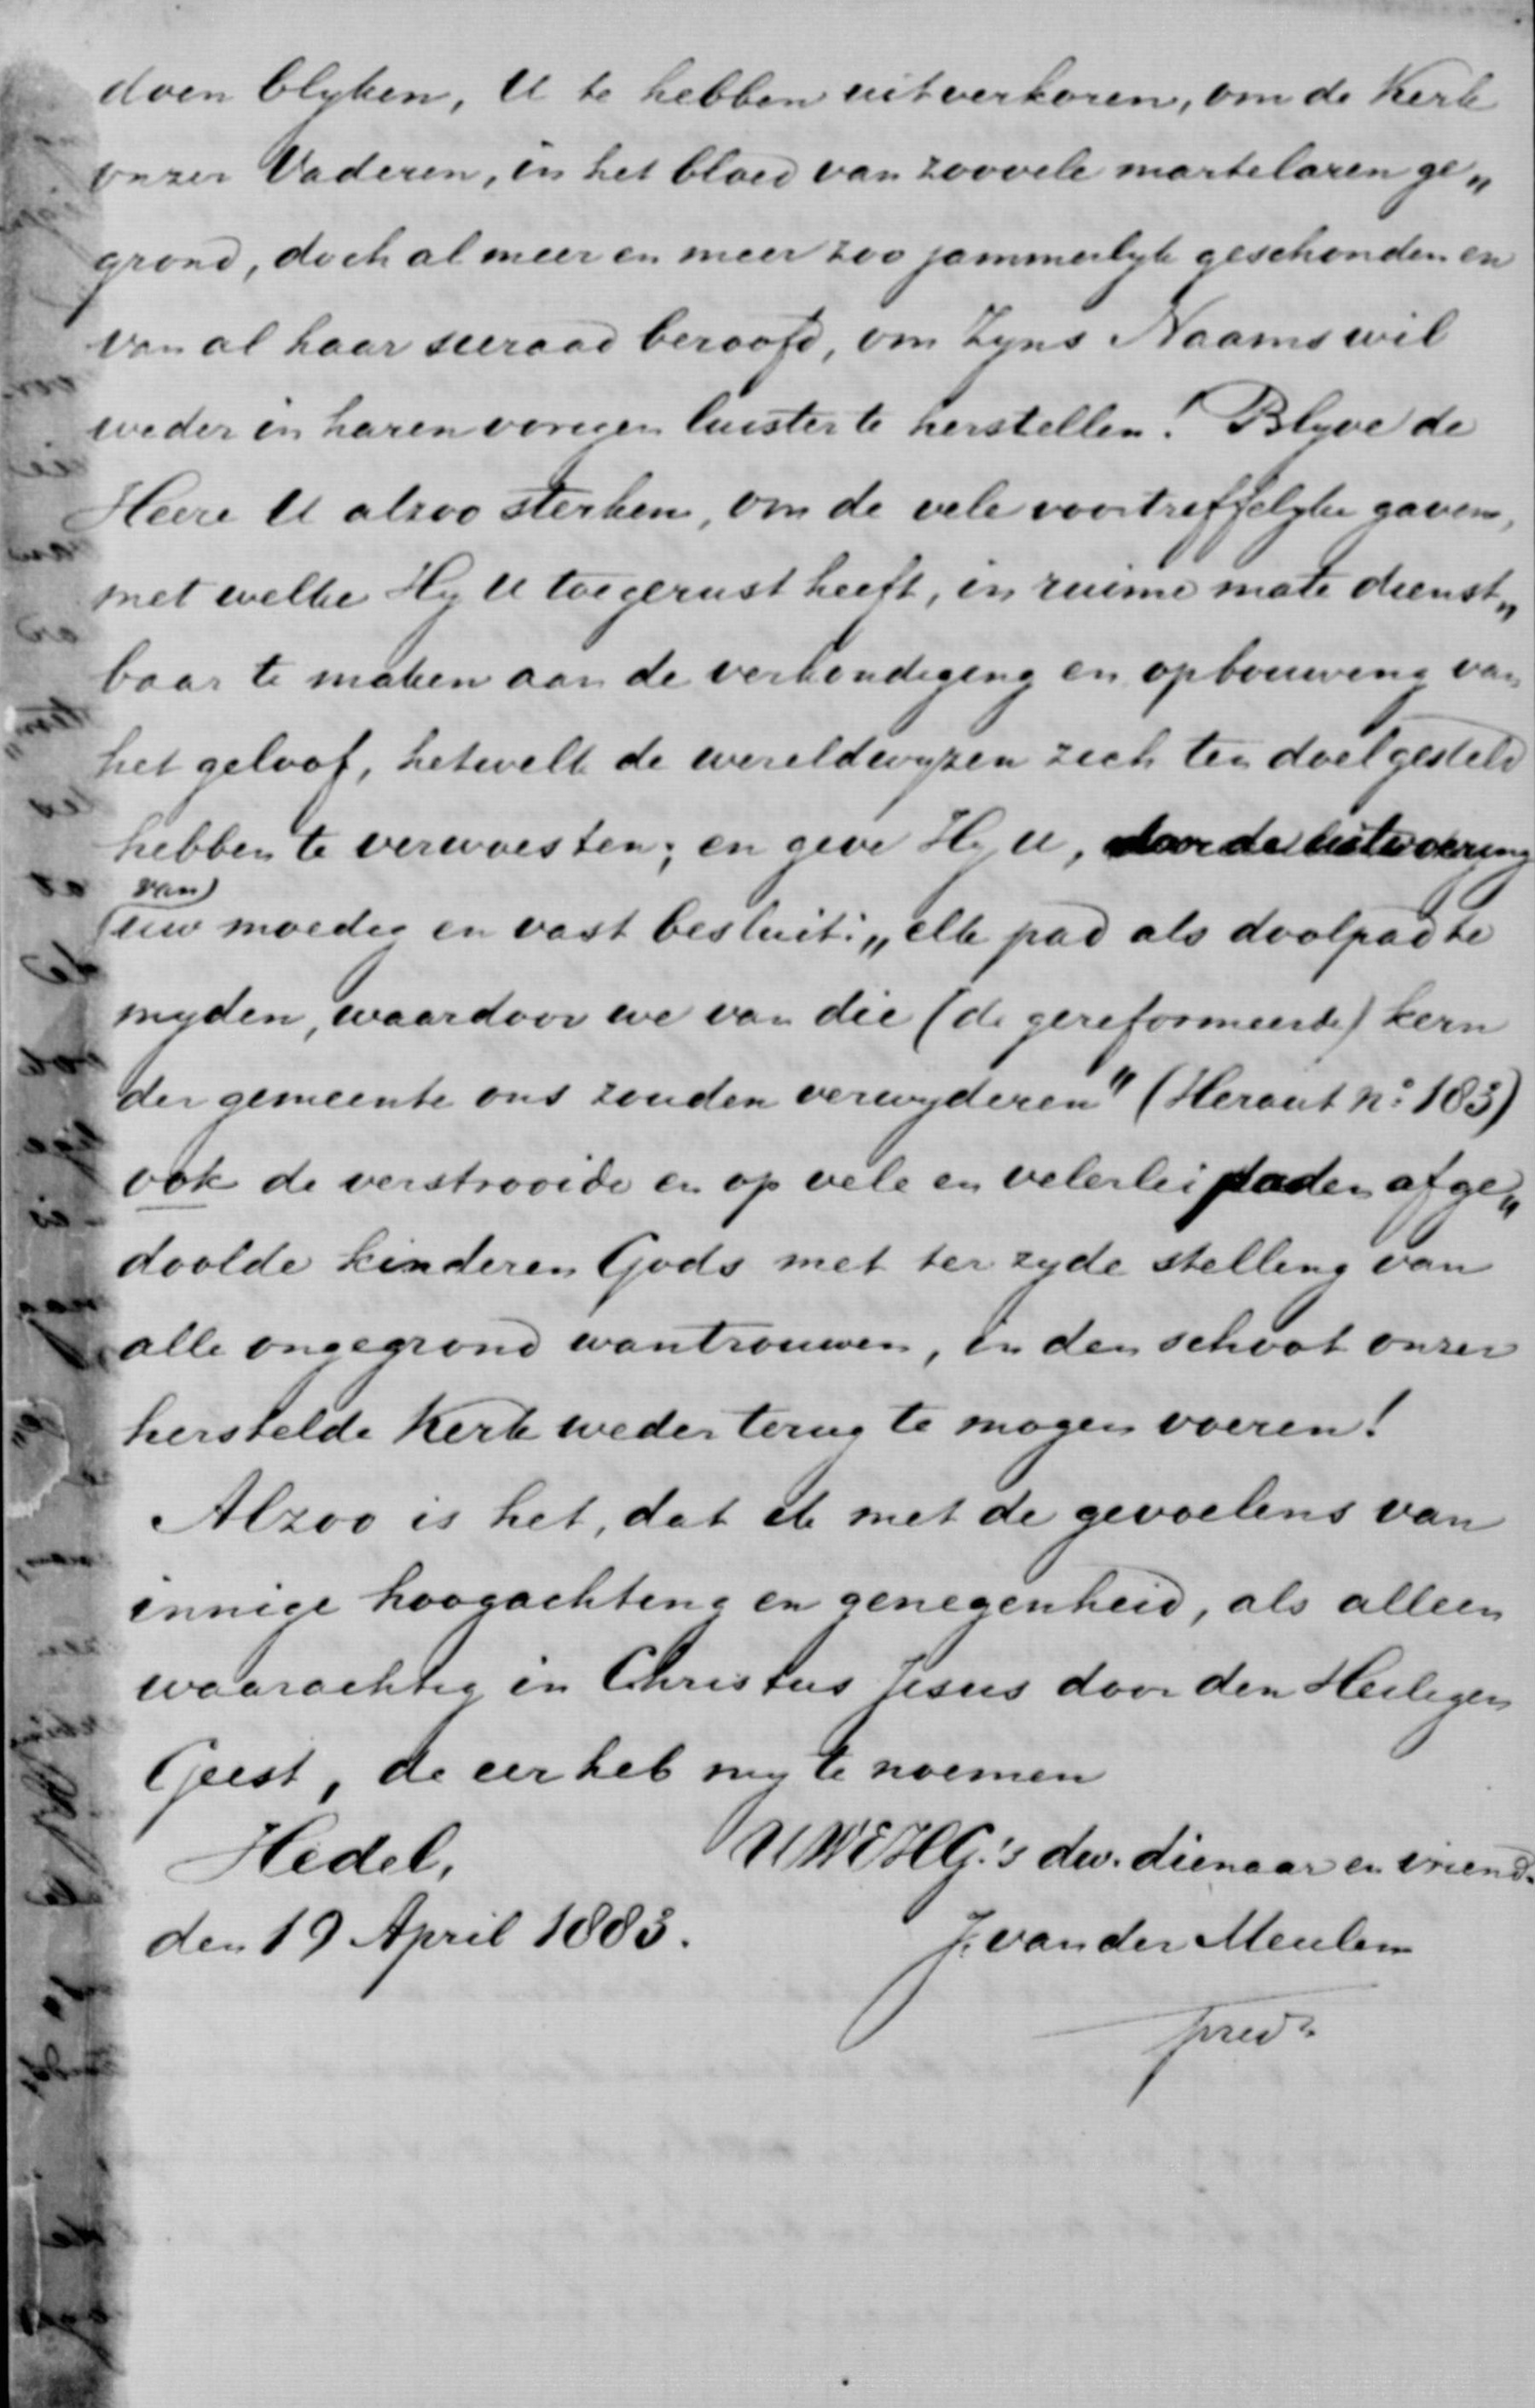 doen blyken, U te hebben uitverkoren, om de Kerk
onzer Vaderen, in het bloed van zoovele martelaren ge„
grond, doch al meer en meer zoo jammerlyk geschonden en
van al haar sieraad beroofd, om Zyns Naams wil
weder in haren vorigen luister te herstellen! Blyve de
Heere U alzoo sterken, om de vele voortreffelyke gaven,
met welke Hy U toegerust heeft, in ruime mate dienst„
baar te maken aan de verkondiging en opbouwing van
het geloof, hetwelk de wereldwyzen zich ten doel gesteld
hebben te verwoesten; en geve Hy U, door de uitvoering
van
uw moedig en vast besluit: „elk pad als doolpad te
myden, waardoor we van die (de gereformeerde) kern
der gemeente ons zouden verwyderen" (Heraut no. 183)
ook de verstrooide en op vele en velerlei paden afge„
doolde kinderen Gods met ter zyde stelling van
alle ongegrond wantrouwen, in den schoot onzer
herstelde Kerk weder terug te mogen voeren!
Alzoo is het, dat ik met de gevoelens van
innige hoogachting en genegenheid, als alleen
waarachtig in Christus Jesus door den Heiligen
Geest, de eer heb my te noemen
Hedel, UWEHG.'s dw. dienaar en vriend.
den 19 April 1883. J. van der Meulen
pred.